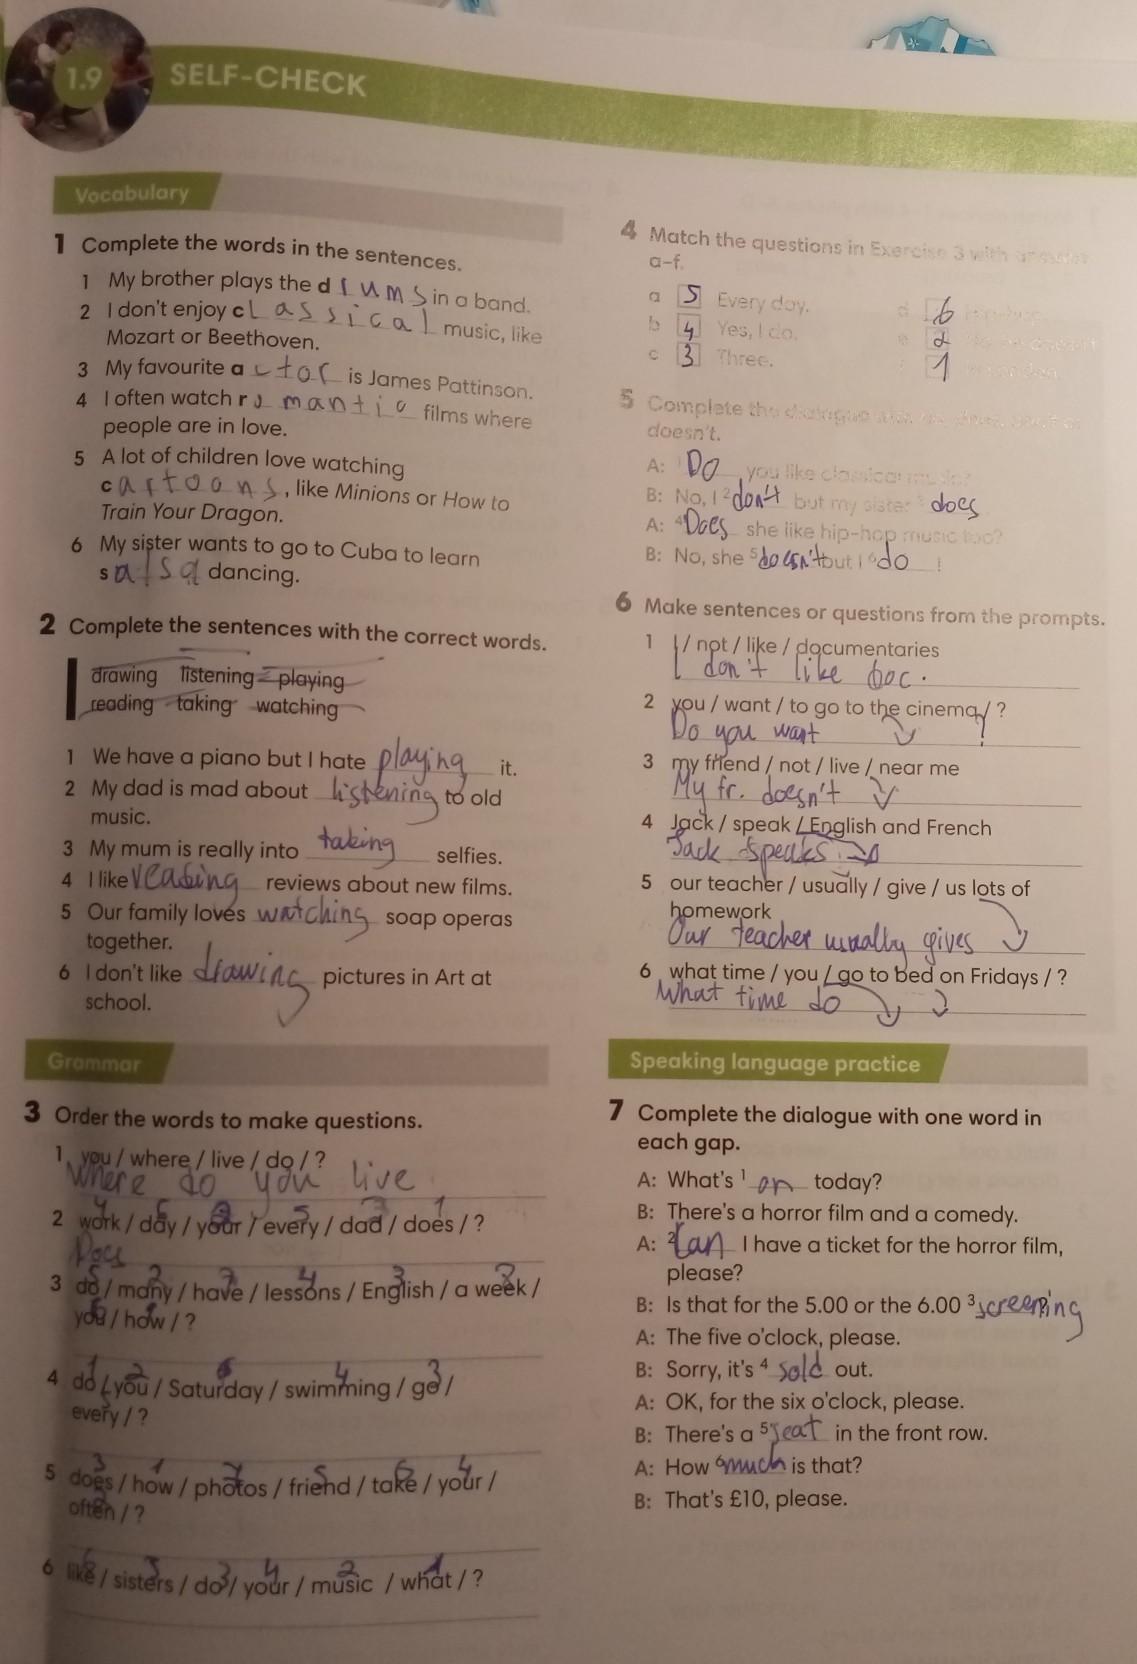 1.9 SELF-CHECK
Vocabulary
1 Complete the words in the sentences.
1 My brother plays the d r u m s in a band.
2 I don't enjoy cl a s s i c a l music, like
Mozart or Beethoven.
3 My favourite a c t o r is James Pattinson.
4 I often watch r o m a n t i c films where
people are in love.
5 A lot of children love watching
c a r t o o n s, like Minions or How to
Train Your Dragon.
6 My sister wants to go to Cuba to learn
s a l s a dancing.
2 Complete the sentences with the correct words.
drawing listening playing
reading taking watching
1 We have a piano but I hate playing it.
2 My dad is mad about listening to old
music.
3 My mum is really into taking selfies.
4 I like reading reviews about new films.
5 Our family loves watching soap operas
together.
6 I don't like drawing pictures in Art at
school.
Grammar
3 Order the words to make questions.
1 you / where / live / do / ?
Where do you live
2 work / day / your / every / dad / does / ?
Does
3 do / many / have / lessons / English / a week /
you / how / ?
4 do / you / Saturday / swimming / go /
every / ?
5 does / how / photos / friend / take / your /
often / ?
6 like / sisters / do / your / music / what / ?
4 Match the questions in Exercise 3 with answers
a-f.
a 5 Every day. d 6
b 4 Yes, I do. e 2
c 3 Three. 1
5 Complete the dialogue
doesn't.
A: Do you like classical music?
B: No, I 2 don't but my sister does
A: 4 Does she like hip-hop music too?
B: No, she 5 doesn't but I 6 do !
6 Make sentences or questions from the prompts.
1 I / not / like / documentaries
I don't like doc.
2 you / want / to go to the cinema / ?
Do you want ?
3 my friend / not / live / near me
My fr. doesn't
4 Jack / speak / English and French
Jack speaks
5 our teacher / usually / give / us lots of
homework
Our teacher usually gives
6 what time / you / go to bed on Fridays / ?
What time do
Speaking language practice
7 Complete the dialogue with one word in
each gap.
A: What's 1 on today?
B: There's a horror film and a comedy.
A: 2 Can I have a ticket for the horror film,
please?
B: Is that for the 5.00 or the 6.00 3 screening ?
A: The five o'clock, please.
B: Sorry, it's 4 sold out.
A: OK, for the six o'clock, please.
B: There's a 5 seat in the front row.
A: How 6 much is that?
B: That's £10, please.